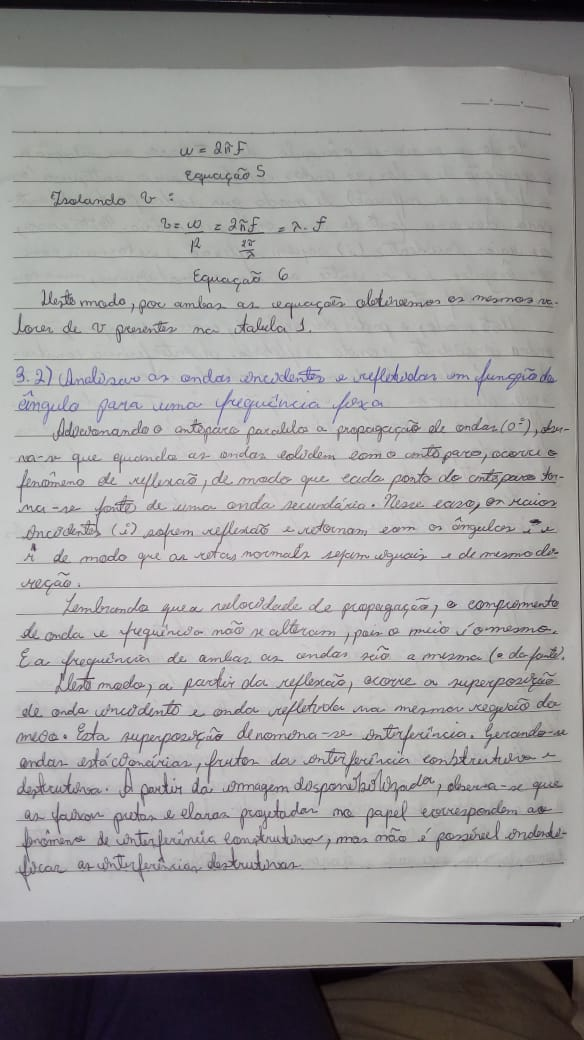 w = 2πf
Equação 5
Isolando v :
v = w/k = 2πf/(2π/λ) = λ. f
Equação 6
Deste modo, por ambas as equações obtivemos os mesmos va-
lores de v presentes na tabela 1.
3.2) Analisar as ondas incidentes e refletidas em função do
ângulo para uma frequência fixa
Adicionando o anteparo paralelo a propagação de ondas (0º), obser-
va-se que quando as ondas colidem com o anteparo, ocorre o
fenômeno de reflexão, de modo que cada ponto do anteparo tor-
na-se fonte de uma onda secundária. Nesse caso, os raios
incidentes (i) sofrem reflexão e retornam com os ângulos i e
r de modo que as retas normais sejam iguais e de mesma di-
reção.
Lembrando que a velocidade de propagação, o comprimento
de onda e frequência não se alteram, pois o meio é o mesmo.
E a frequência de ambas as ondas são a mesma (a da fonte).
Deste modo, a partir da reflexão, ocorre a superposição
de onda incidente e onda refletida na mesma região do
meio. Esta superposição denomina-se interferência. Gerando-se
ondas estacionárias, frutos da interferência construtiva e
destrutiva. A partir da imagem disponibilizada, observa-se que
as faixas pretas e claras projetadas no papel correspondem ao
fenômeno de interferência construtiva, mas não é possível indenti-
ficar as interferências destrutivas.